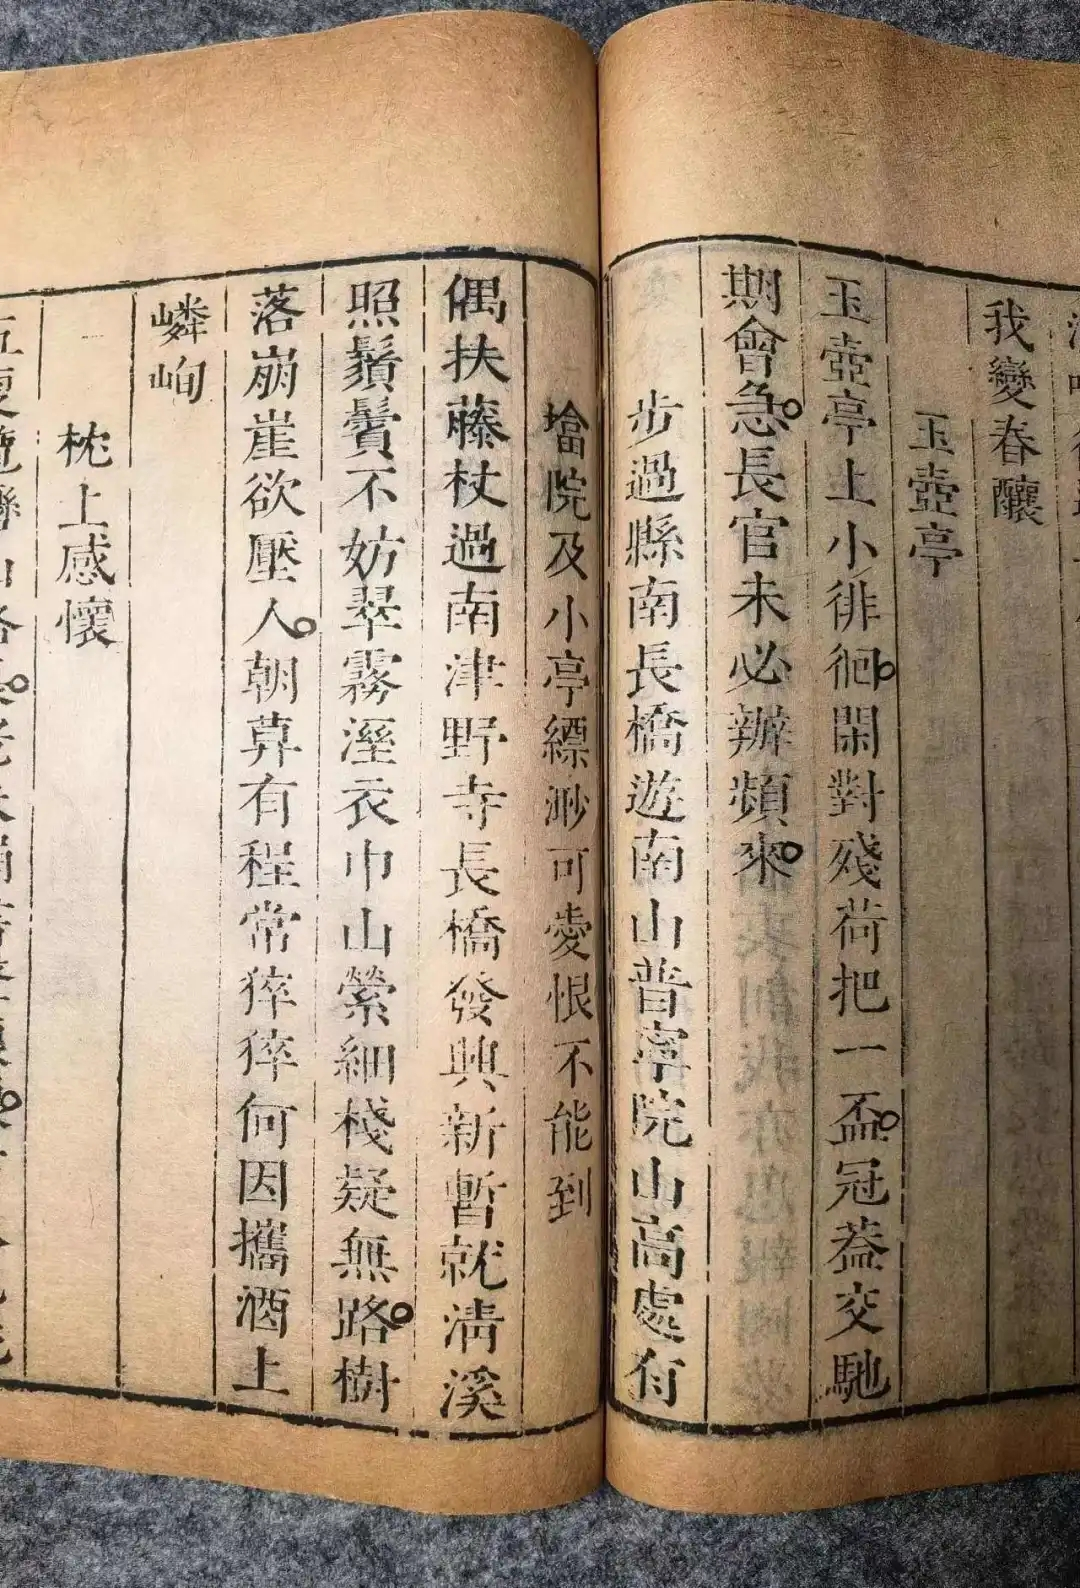 我變春釀
玉壺亭
玉壺亭上小徘徊閑對殘荷把一盃冠葢交馳
期會急長官未必辦頻來
步過縣南長橋遊南山普寧院山高處有
墖院及小亭縹渺可愛恨不能到
偶扶藤杖過南津野寺長橋發興新暫就淸溪
照鬚鬢不妨翠霧溼衣巾山縈細棧疑無路樹
落崩崖欲壓人朝莫有程常猝猝何因攜酒上
嶙峋
枕上感懷